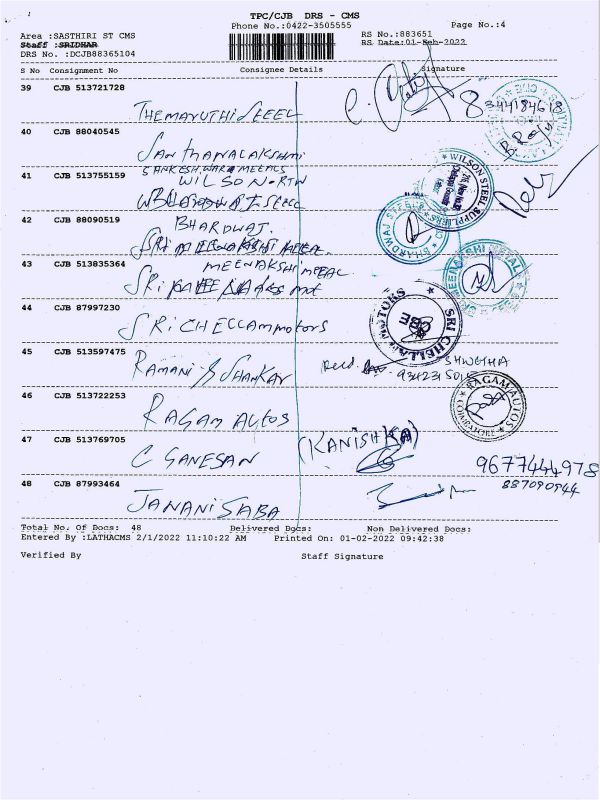 TPC/CJB DRS - CMS
Phone No.:0422-3505555
Page No.:4
Area :SASTHIRI ST CMS
RS No.:883651
Staff :SRIDHAR
RS Date:01-Feb-2022
DRS No. :DCJB88365104
S No Consignment No Consignee Details Signature
39 CJB 513721728
THEMARUTHI STEEL
8344184618
40 CJB 88040545
SANTHANALAKSHMI
41 CJB 513755159
SANKESHWAR METALS
WILSON
WILSON STEEL SUPPLIERS
42 CJB 88090519
BHARDWAJ.
43 CJB 513835364
MEENAKSHI METAL
SRI
44 CJB 87997230
SRI CHELLAM motors
SRI CHELLAM MOTORS
CBE
45 CJB 513597475
RAMANI SHANKAR
Recd.
SHWETHA
46 CJB 513722253
RAGAM AUTOS
RAGAM AUTOS
47 CJB 513769705
C GANESAN
(KANISHKA)
9677444978
48 CJB 87993464
887090944
JANANI SABA
Total No. Of Docs: 48 Delivered Docs: Non Delivered Docs:
Entered By :LATHACMS 2/1/2022 11:10:22 AM Printed On: 01-02-2022 09:42:38
Verified By Staff Signature